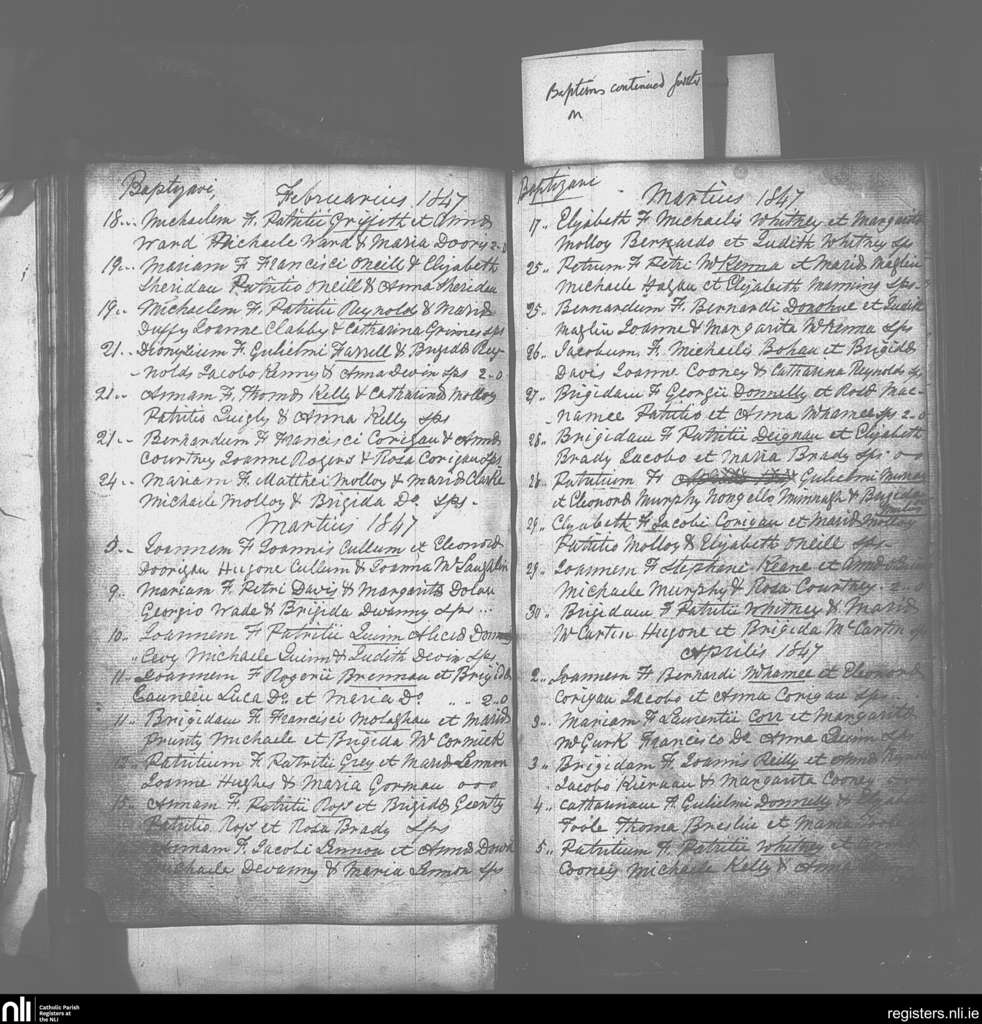 Baptisms continued
on
Baptizavi
Februarius 1847
18.. Michaelem F. Patritii Griffith et Anna
Ward Michaele Ward & Maria Doory 2-0
19.. Mariam F Francisci Oneill & Elizabeth
Sheridan Patritio Oneill & Anna Sheridan
19.. Michaelem F. Patritii Reynolds & Maria
Duffy Joanne Clabby & Catharina Grimes sps
21.. Dionysium F. Gulielmi Farrell & Brigida Rey-
-nolds Jacobo Kenny & Anna Devin sps 2-0
21.. Annam F. Thoma Kelly & Catharina Molloy
Patritio Quigly & Anna Kelly sps
21.. Bernardum F Francisci Corigan & Anna
Courtney Joanne Rogers & Rosa Corigan sps
24.. Mariam F. Matthei Molloy & Maria Clarke
Michaele Molloy & Brigida Do. sps -
Martius 1847
Joannem F Joannis Cullum et Eleonora
Doorigan Hugone Cullum & Joanna McLaughlin
9.. Mariam F. Petri Davis & Margarita Dolan
Georgio Wade & Brigida Dwanny sps
10.. Joannem F Patritii Quinn Alicia
Levy Michaele Quinn & Judith Devin sps
11.. Joannem F Rogerii Brennan et Brigida
Luca Do. et Maria Do. 2-0
11.. Brigidam F. Francisci Molaghan et Maria
Prunty Michaele et Brigida McCormick
12.. Patritium F Patritii Grey et Maria Lennon
Joanne Hughes & Maria Gorman 000
15.. Annam F. Patritii Ross et Brigida Geerty
Patritio Ross et Rosa Brady sps
Annam F. Jacobi Lennon et Anna
Michaele Devanny & Maria Lennon sps
Baptizavi
Martius 1847
17.. Elyabeth F Michaelis Whitney et Margarita
Molloy Bernardo et Judith Whitney sps
25.. Petrum F Petri McKenna et Maria
Michaele Hagan et Elyabeth Manning sps
25.. Bernardum F. Bernardi Donohue et Judith
Joanne & Margarita McKenna sps
26.. Jacobum F. Michaelis Bohan et Brigida
Davis Joanne Cooney & Catharina Reynolds sps
27.. Brigidam F Georgii Donnelly et Rosa Mac-
-namee Patritio et Anna sps 2-0
28.. Brigidam F Patritii Deignan et Elyabeth
Brady Jacobo et Maria Brady sps 00
28.. Patritium F Gulielmi
et Eleonora Murphy & Brigida
29.. Elyabeth F Jacobi Corigan et Maria Molloy
Patritio Molloy & Elizabeth Oneill sps
29.. Joannem F Stephani Keane et Anna
Michaele Murphy & Rosa Courtney 2-0
30.. Brigidam F Patritii Whitney & Maria
McCartin Hugone et Brigida McCartin
Aprilis 1847
2.. Joannem F Bernardi et Eleonora
Corigan Jacobo et Anna Corigan sps
3.. Mariam F Laurentii Corr et Margarita
McGurk Francesco Do. Anna Quinn sps
3.. Brigidam F. Joannis Reilly et Anna
Jacobo Kiernan & Margarita Cooney
4.. Catharinam F. Gulielmi Donnelly &
Toole Thoma Breslin et Maria Toole
5.. Patritium F. Patritii Whitney et
Cooney Michaele Kelly & Anna
nli
Catholic Parish
Registers at
the NLI
registers.nli.ie